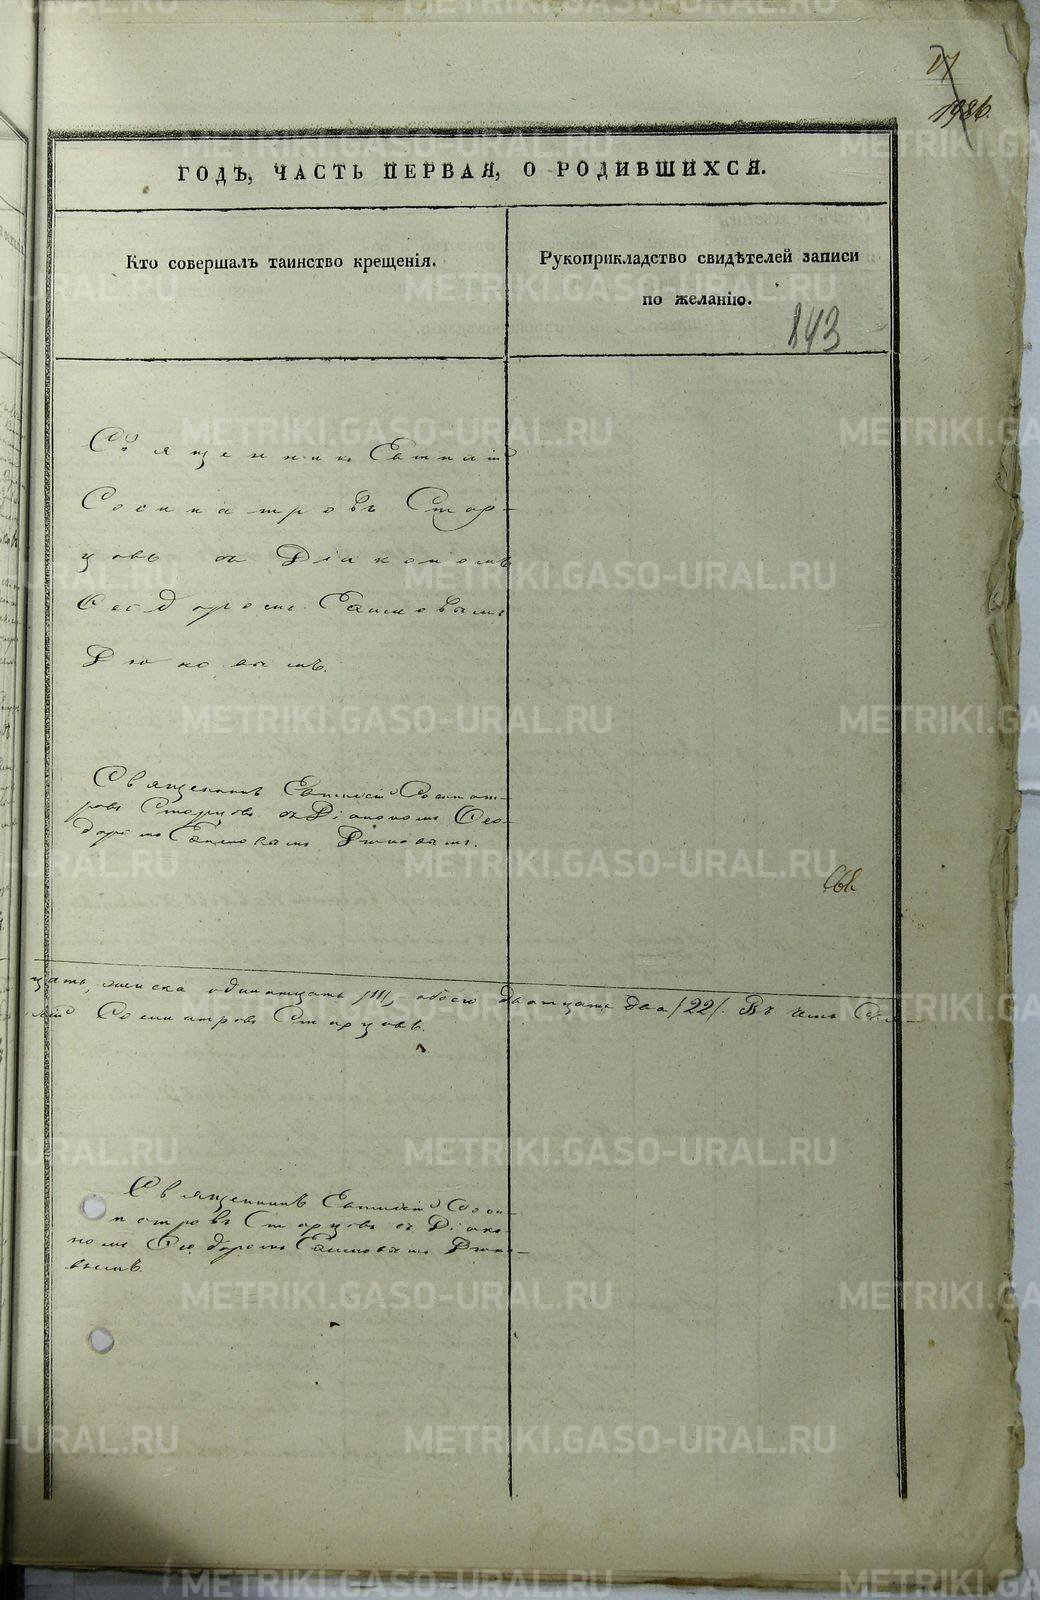 17
1986.
ГОДЪ, ЧАСТЬ ПЕРВАЯ, О РОДИВШИХСЯ.
Кто совершалъ таинство крещенія.
Рукоприкладство свидѣтелей записи
по желанію.
143
Священникъ Евтихій
Сосипатровъ Стар-
цовъ съ Діакономъ
Ѳеодоромъ
Дюковымъ.
Священникъ Евтихій Сосипат-
ровъ Старцовъ съ Діакономъ Ѳео-
доромъ Дюковымъ.
цать, женска одинатцать /11/, обоего дватцать два /22/. Въ чемъ Свя-
Сосипатровъ Старцовъ.
Священникъ Евтихій Соси-
патровъ Старцовъ съ Діако-
номъ Ѳеодоромъ Дюко-
вымъ.
METRIKI.GASO-URAL.RU